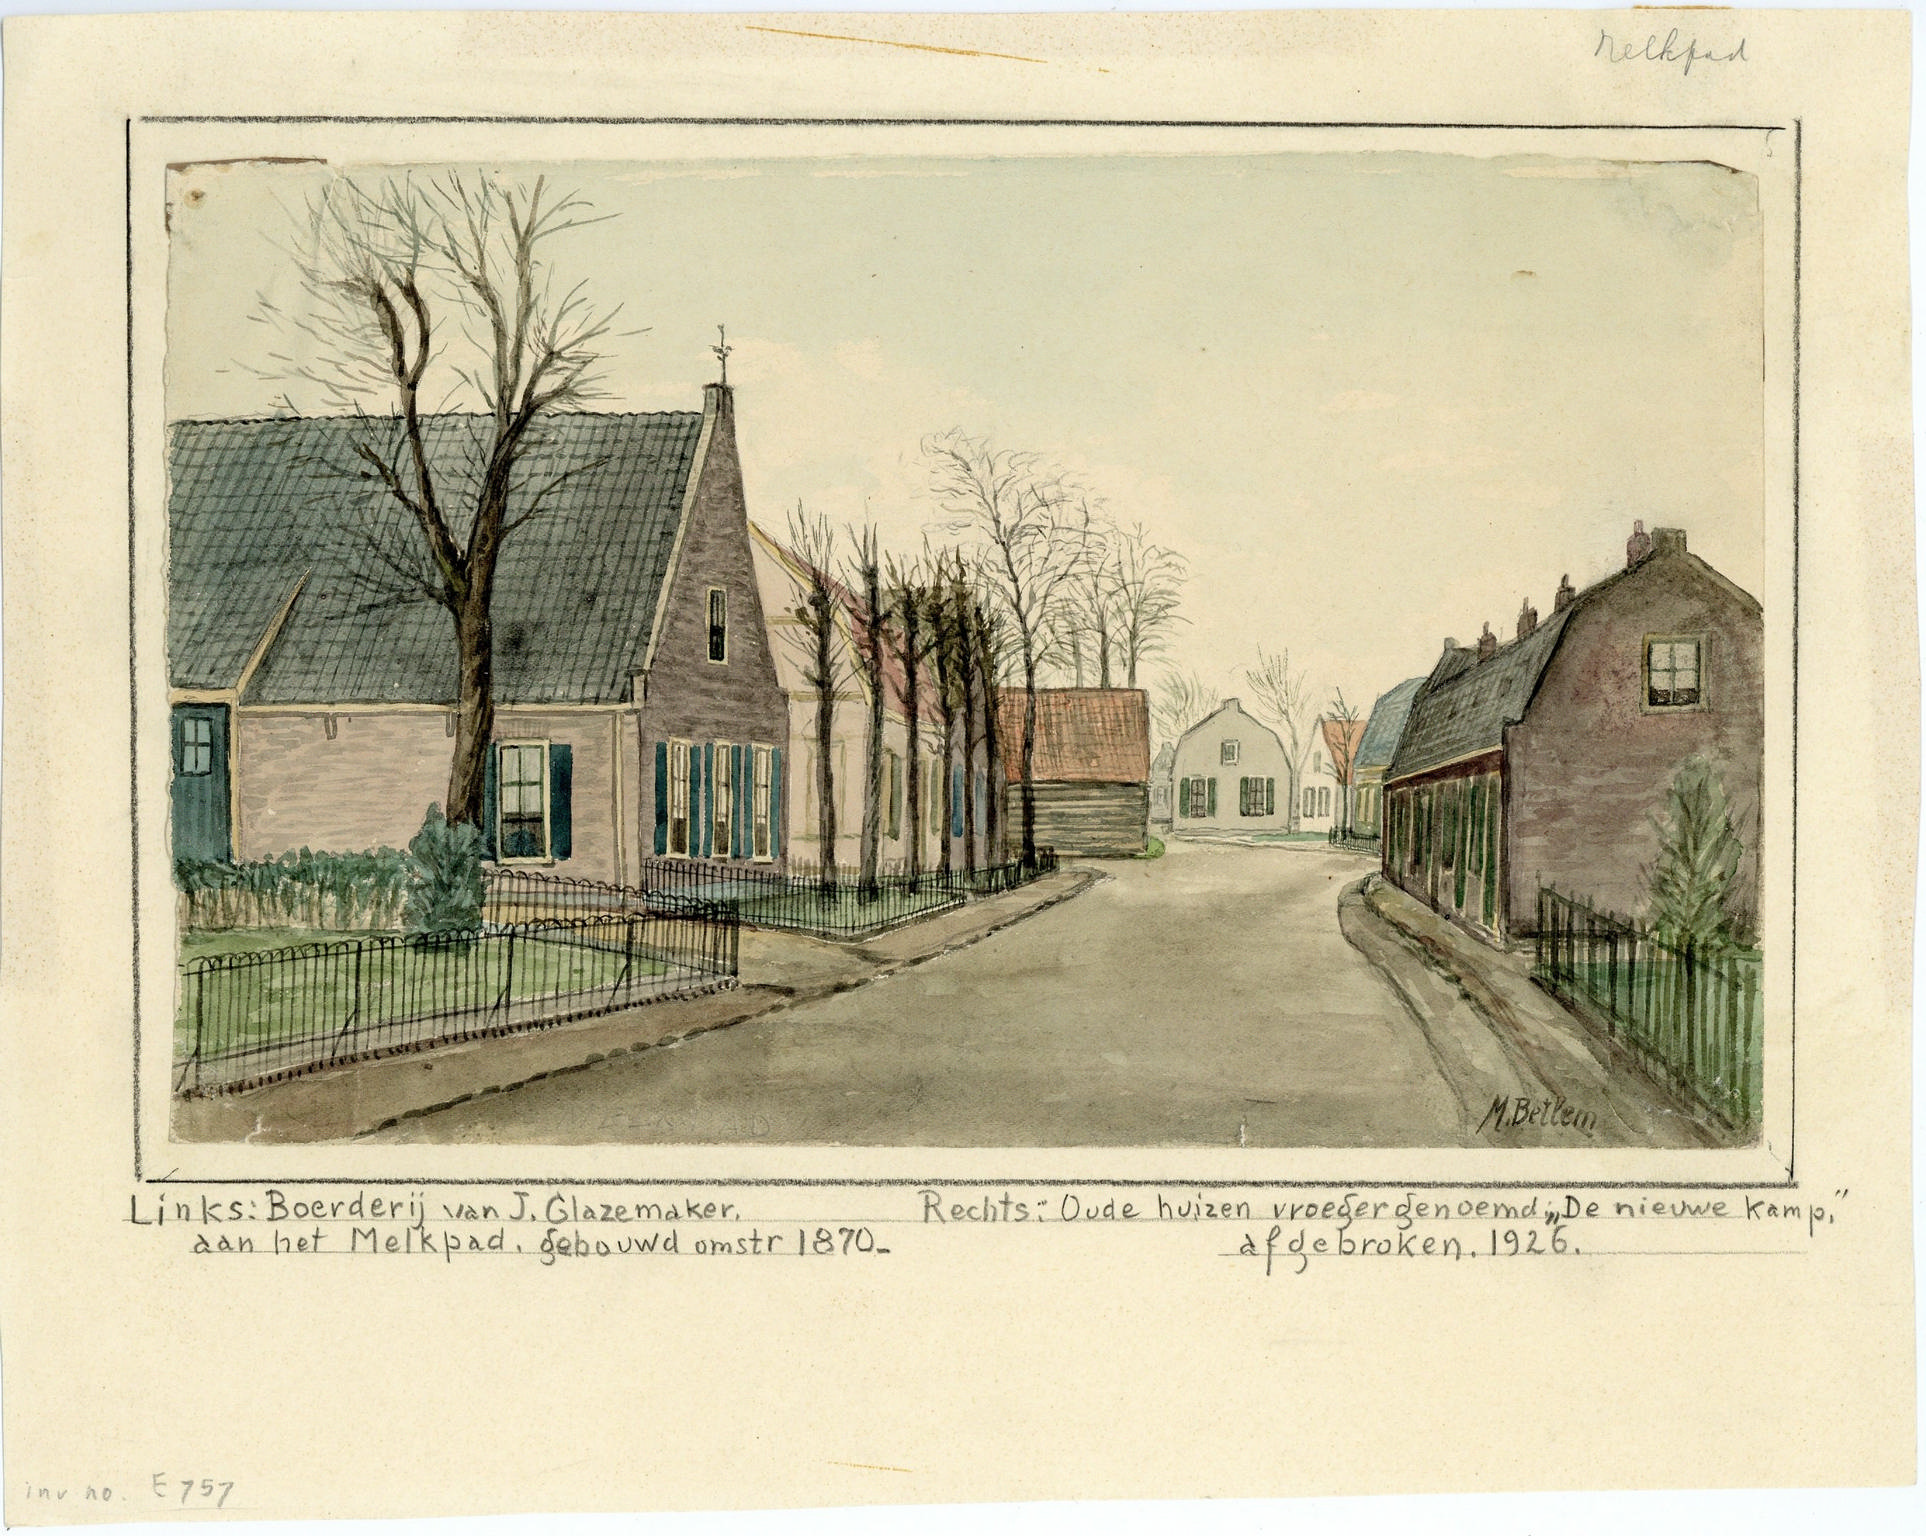 Melkpad
M. Betlem
Links: Boerderij van J. Glazemaker.
aan het Melkpad. gebouwd omstr 1870.
Rechts: Oude huizen vroeger genoemd; „De nieuwe kamp."
afgebroken. 1926.
inv no. E 757